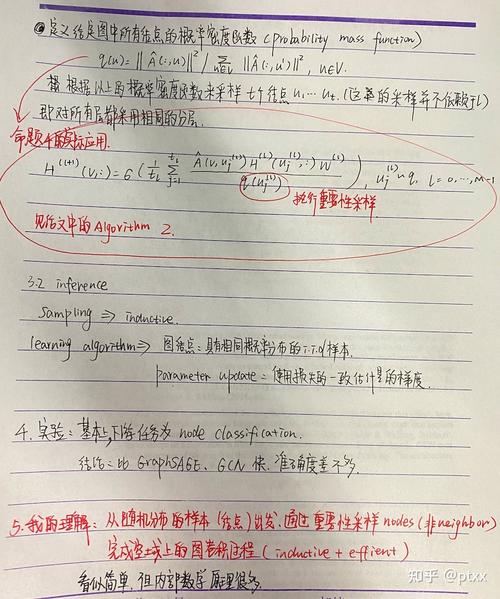 ④定义给定图中所有结点的概率密度函数 (probability mass function)
q(u) = ||Â(:,u)||² / Σ_{u'∈V} ||Â(:,u')||², u∈V.
根据以上的概率密度函数来采样 t个结点 u₁…u_t. (这里的采样并不依赖于l)
即对所有层都采用相同的分层.
命题4的实际应用.
H^{(l+1)}(v,:) = σ( 1/t_l Σ_{j=1}^{t_l} Â(v,u_j^{(l)}) H^{(l)}(u_j^{(l)},:) W^{(l)} / q(u_j^{(l)}) ), u_j^{(l)} ~ q, l=0,…,M-1
执行重要性采样.
见论文中的Algorithm 2.
3.2 inference
Sampling ⇒ inductive.
learning algorithm ⇒ 图结点: 具有相同概率分布的 i.i.d 样本.
parameter update = 使用损失的一致估计量的梯度.
4. 实验: 基本上, 下游任务为 node classification.
结论: 比 GraphSAGE、GCN 快. 准确度差不多.
5. 我的理解: 从随机分布的样本(结点)出发, 通过重要性采样 nodes (非neighbor)
完成
上的图卷积过程 (inductive + effient)
看似简单, 但内部数学原理很多.
知乎 @ptxx